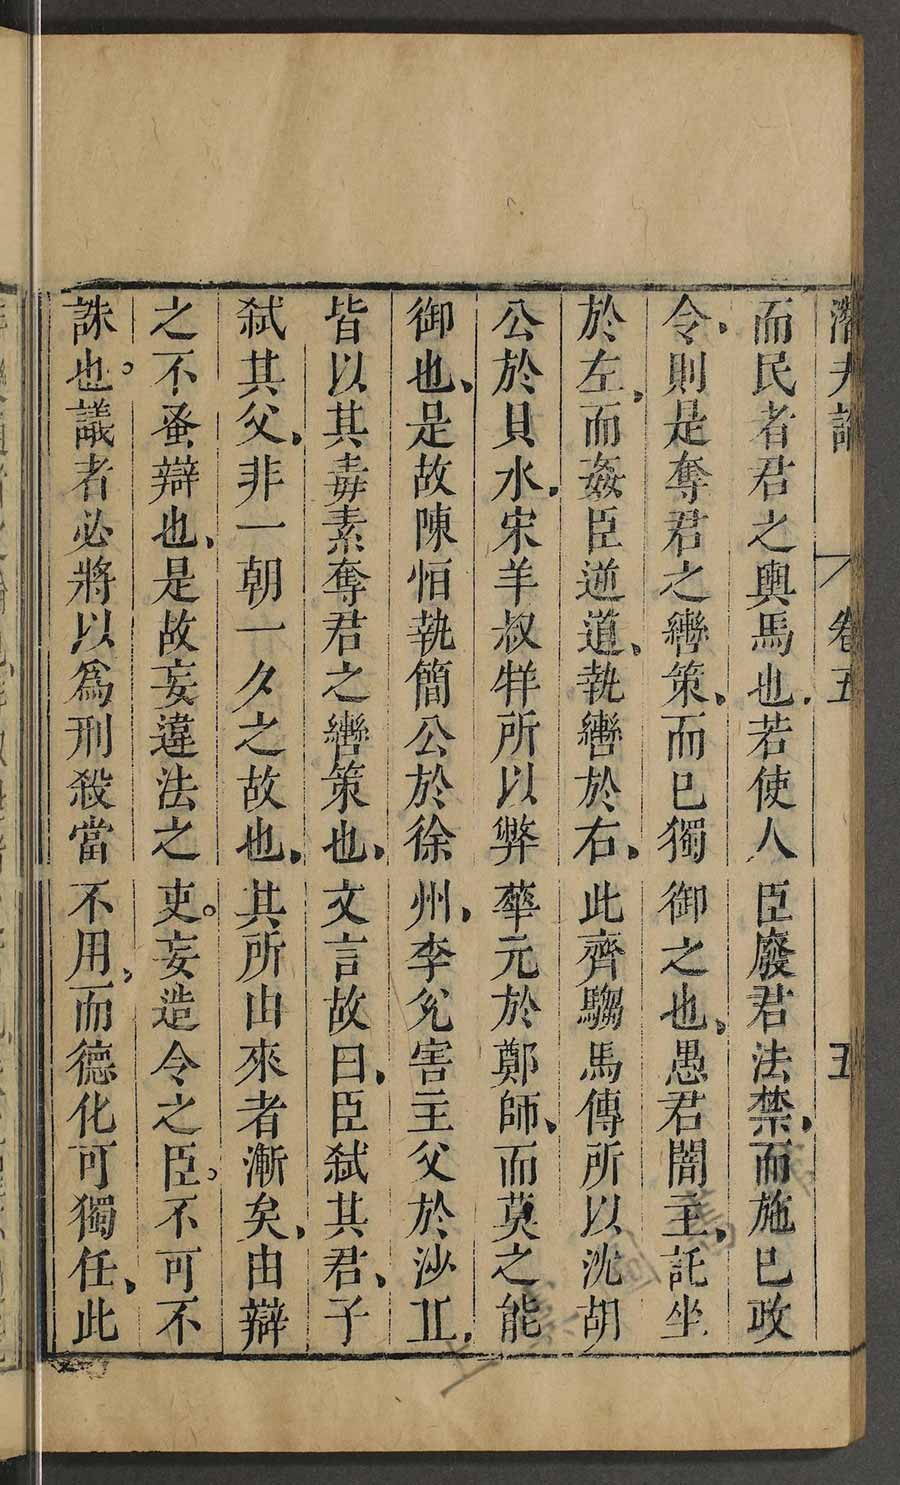 潛夫論 卷五 五
而民者君之輿馬也若使人臣廢君法禁、而施已政
令、則是奪君之轡策、而已獨御之也、愚君闇主、託坐
於左、而姦臣逆道、執轡於右、此齊騶馬傳所以沈胡
公於貝水、宋羊叔牂所以弊華元於鄭師、而莫之能
御也、是故陳恒執簡公於徐州、李兌害主父於沙丘、
皆以其毒素奪君之轡策也、文言故曰、臣弑其君、子
弑其父、非一朝一夕之故也、其所由來者漸矣、由辯
之不蚤辯也、是故妄違法之吏。妄造令之臣。不可不
誅也。議者必將以爲刑殺當不用、而德化可獨任、此